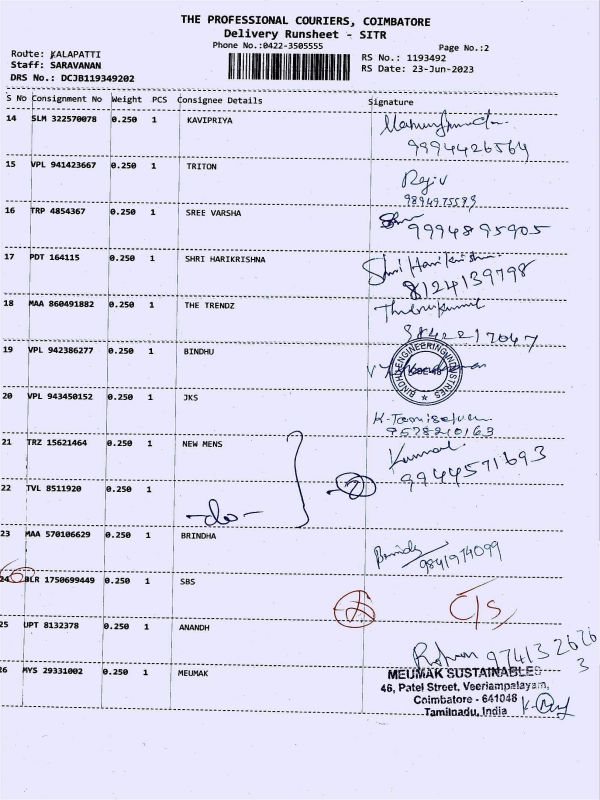 THE PROFESSIONAL COURIERS, COIMBATORE
Delivery Runsheet - SITR
Phone No.:0422-3505555
Page No.:2
Route: KALAPATTI
RS No.: 1193492
Staff: SARAVANAN
RS Date: 23-Jun-2023
DRS No.: DCJB119349202
S No Consignment No Weight PCS Consignee Details Signature
14 SLM 322570078 0.250 1 KAVIPRIYA
9994426564
15 VPL 941423667 0.250 1 TRITON
Rajiv
16 TRP 4854367 0.250 1 SREE VARSHA
9994895905
17 PDT 164115 0.250 1 SHRI HARIKRISHNA
Shri Harikrishna
8124139798
18 MAA 860491882 0.250 1 THE TRENDZ
19 VPL 942386277 0.250 1 BINDHU
BINDHU ENGINEERING INDUSTRIES
20 VPL 943450152 0.250 1 JKS
K-Tamiselvan
9578210163
21 TRZ 15621464 0.250 1 NEW MENS
Kumar
9944571693
22 TVL 8511920 0.250 1
-do-
2
23 MAA 570106629 0.250 1 BRINDHA
Brinda
9841974099
24 BLR 1750699449 0.250 1 SBS
C/S
25 UPT 8132378 0.250 1 ANANDH
974132626
3
26 MYS 29331002 0.250 1 MEUMAK
MEUMAK SUSTAINABLES
46, Patel Street, Veeriampalayam,
Coimbatore - 641048
Tamilnadu, India